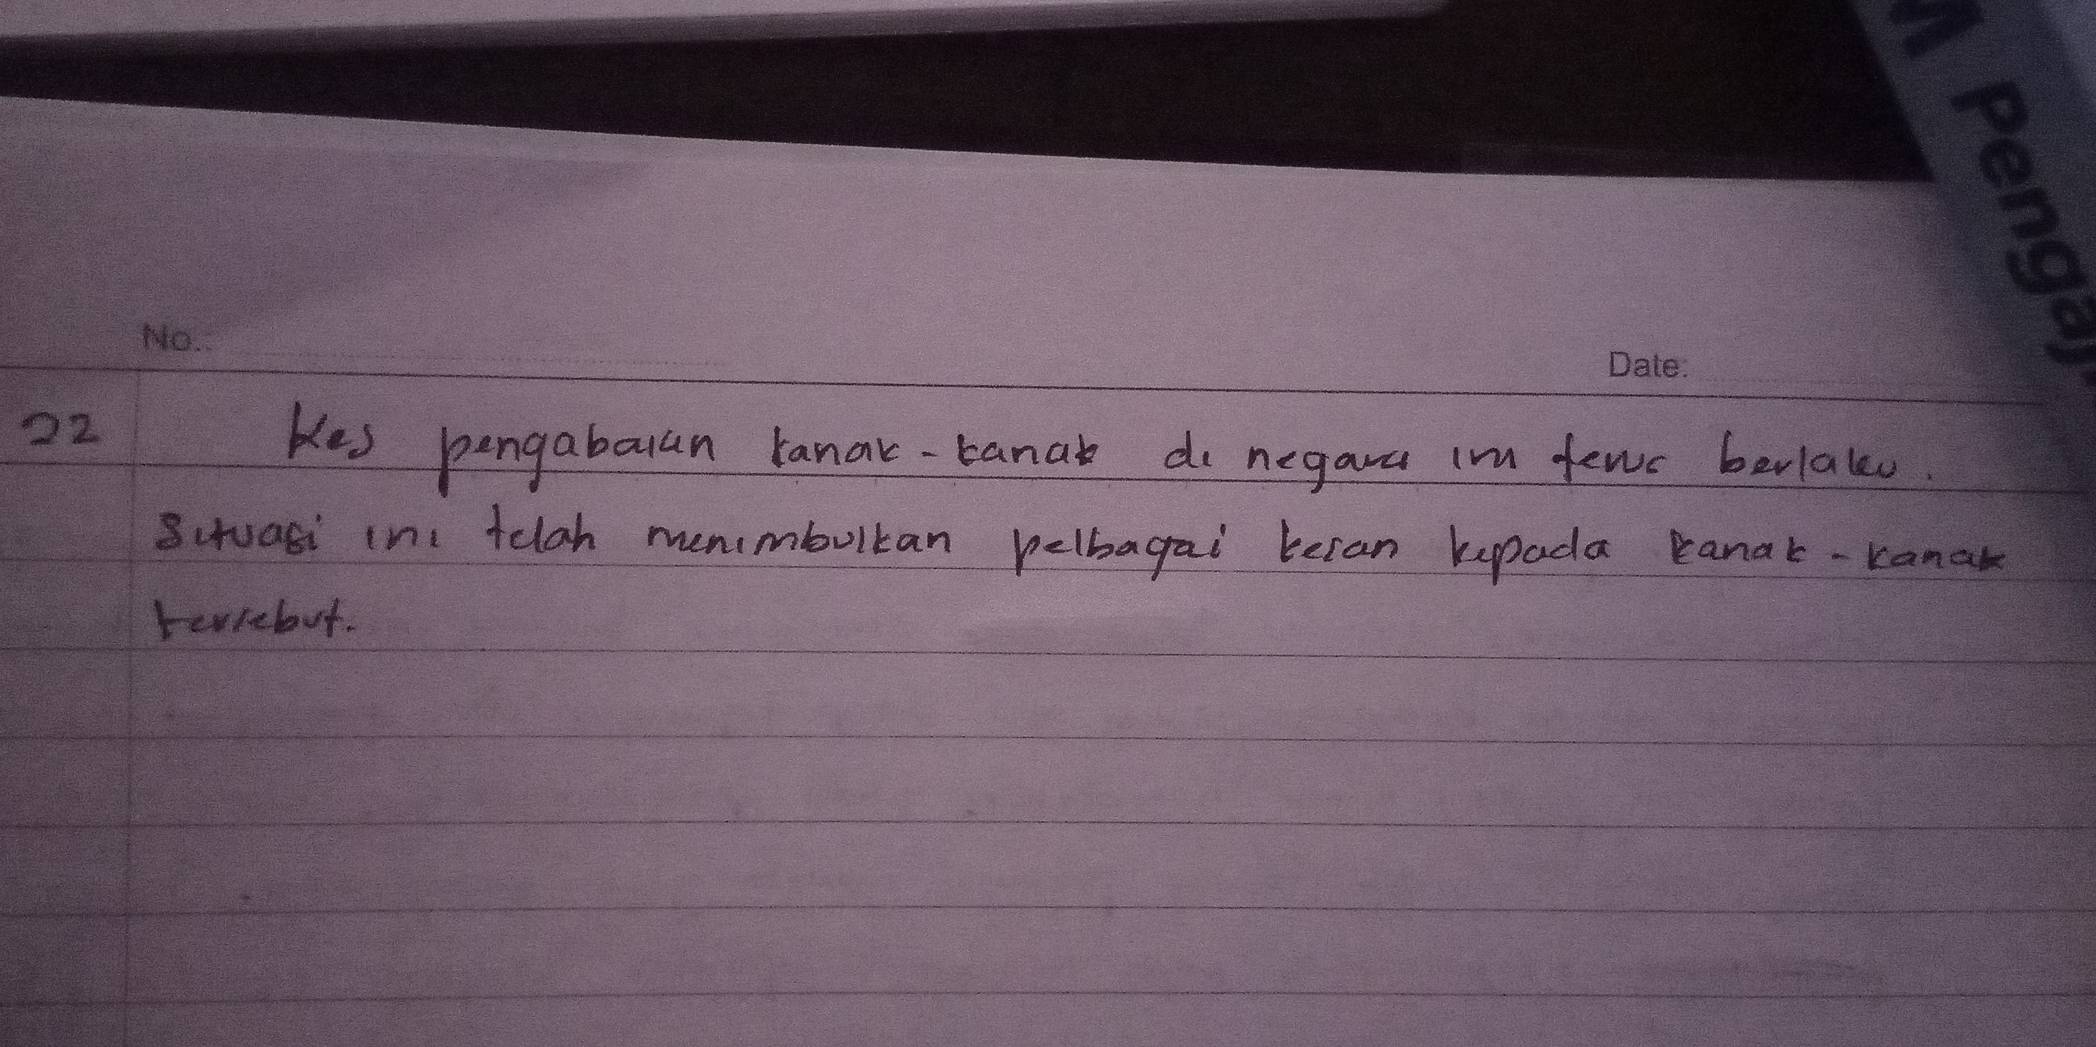 M Pengaj
No.:
Date:
22 Kes pengabaian kanak-kanak di negara ini terus berlaku.
Situasi ini telah menimbulkan pelbagai kesan kepada kanak-kanak
tersebut.